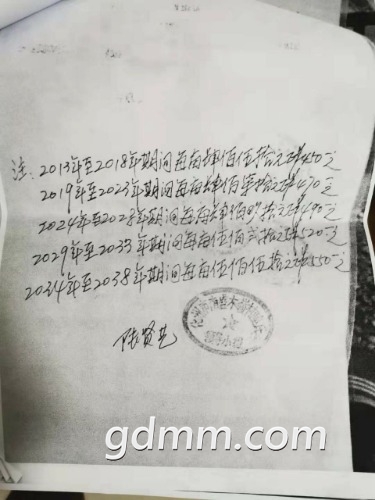 注：2013年至2018年期间每亩肆佰伍拾元整450元
2019年至2023年期间每亩肆佰柒拾元整470元
2024年至2028年期间每亩肆佰玖拾元整490元
2029年至2033年期间每亩伍佰贰拾元整520元
2034年至2038年期间每亩伍佰伍拾元整550元
陆贤
gdmm.com